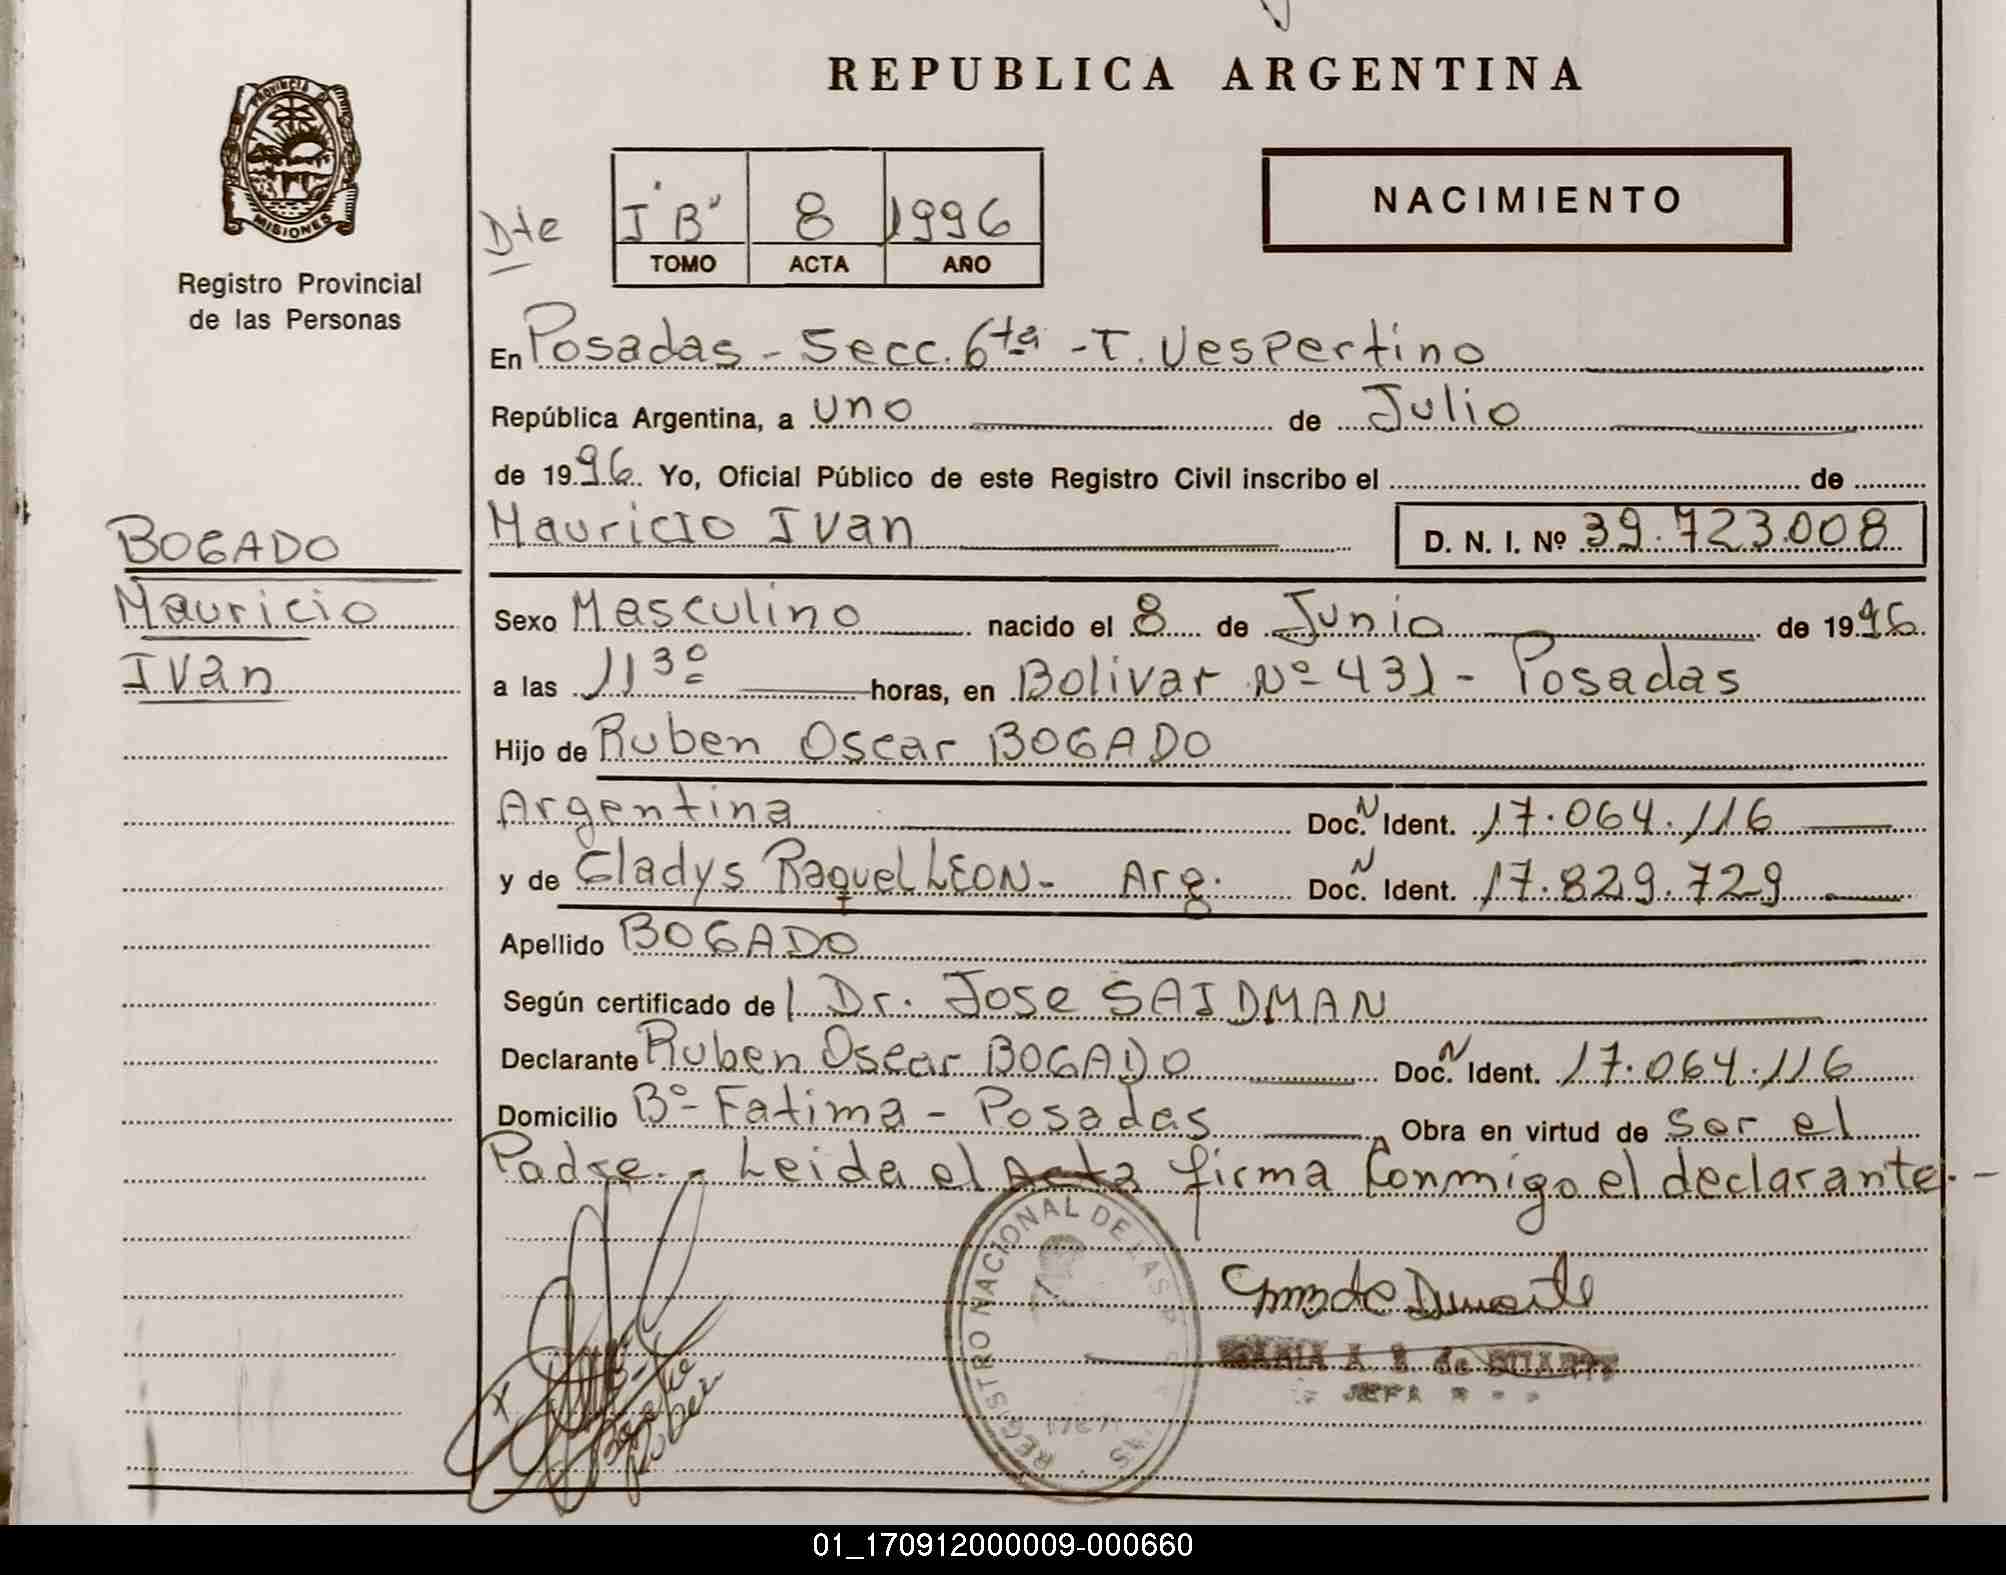 REPUBLICA ARGENTINA
PROVINCIA DE
MISIONES
Registro Provincial
de las Personas
NACIMIENTO
Dte I "B" 8 1996
TOMO ACTA AÑO
En Posadas - Secc. 6ta - T. Vespertino
República Argentina, a uno de Julio
de 1996. Yo, Oficial Público de este Registro Civil inscribo el de
Mauricio Ivan D. N. I. Nº 39.723.008
BOGADO
Mauricio
Ivan
Sexo Masculino nacido el 8 de Junio de 1996
a las 11 30 horas, en Bolivar Nº 431 - Posadas
Hijo de Ruben Oscar BOGADO
Argentina Doc. N Ident. 17.064.116
y de Gladys Raquel LEON - Arg. Doc. N Ident. 17.829.729
Apellido BOGADO
Según certificado del Dr. Jose SAIDMAN
Declarante Ruben Oscar BOGADO Doc. N Ident. 17.064.116
Domicilio Bº Fatima - Posadas Obra en virtud de ser el
Padre. - Leida el Acta firma conmigo el declarante. -
REGISTRO NACIONAL DE LAS
MARIA A. B. de DUARTE
JEFA
Bogado
Ruben
01_170912000009-000660